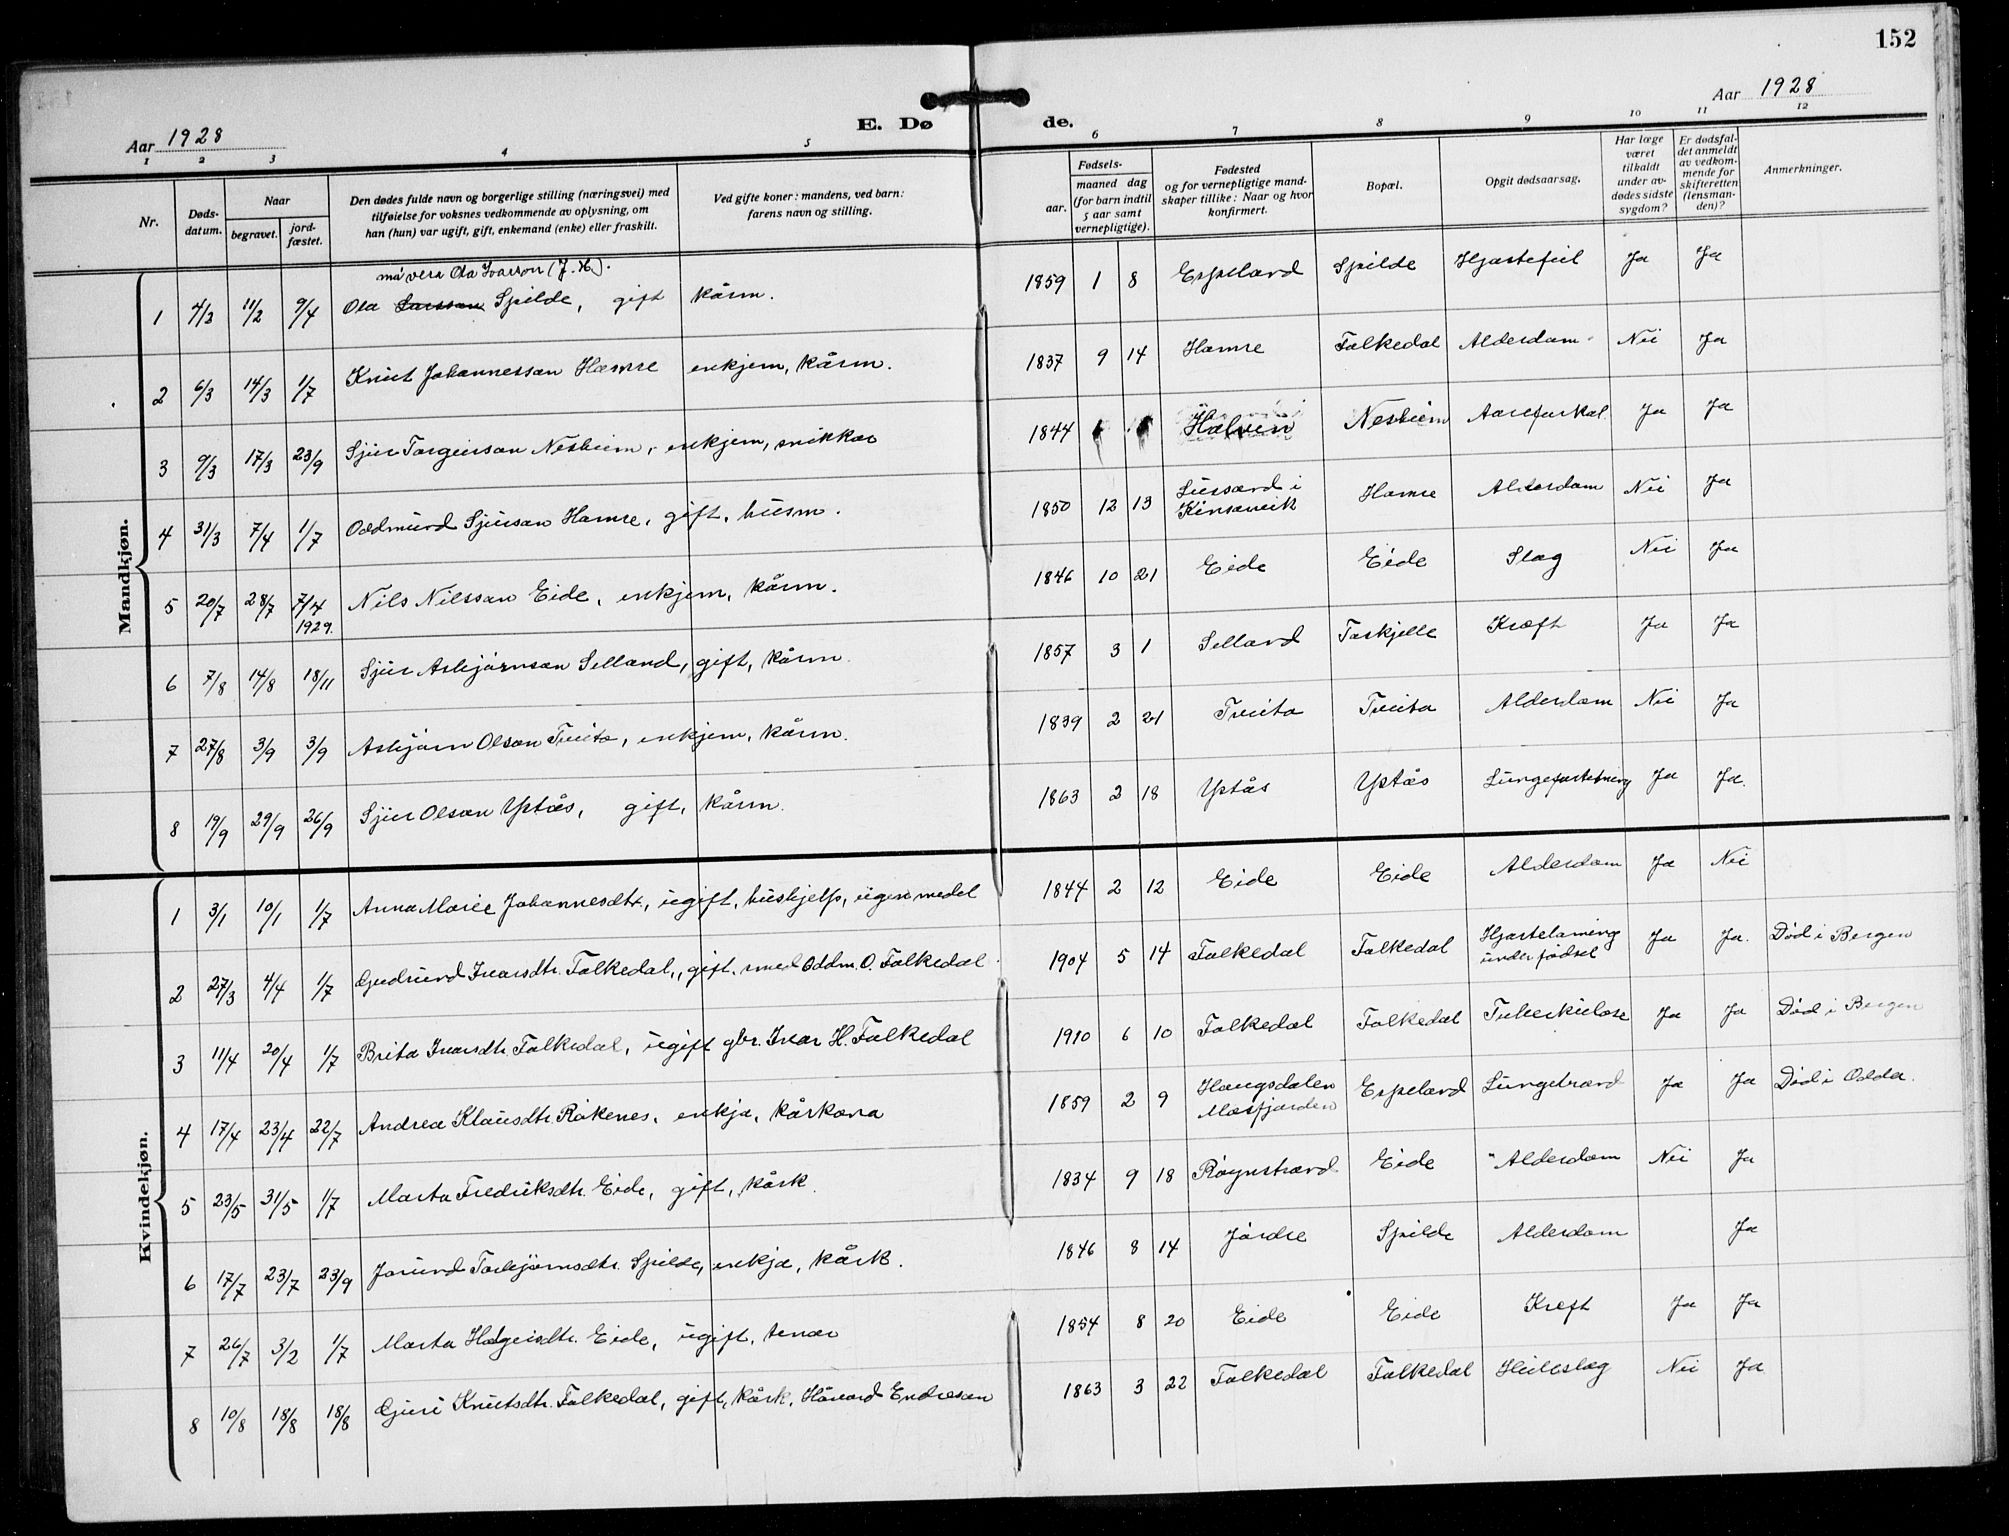 152
Aar 1928
Aar 1928
E. Dø de.
1 2 3 4 5 6 7 8 9 10 11 12
Nr.
Døds-
datum.
Naar
begravet.
jord-
fæstet.
Den dødes fulde navn og borgerlige stilling (næringsvei) med
tilføielse for voksnes vedkommende av oplysning, om
han (hun) var ugift, gift, enkemand (enke) eller fraskilt.
Ved gifte koner: mandens, ved barn:
farens navn og stilling.
Fødsels-
aar.
maaned dag
(for barn indtil
5 aar samt
vernepligtige).
Fødested
og for vernepligtige mand-
skaper tillike: Naar og hvor
konfirmert.
Bopæl.
Opgit dødsaarsag.
Har læge
været
tilkaldt
under av-
dødes sidste
sygdom?
Er dødsfal-
det anmeldt
av vedkom-
mende for
skifteretten
(lensman-
den)?
Anmerkninger.
Mandkjøn.
må vera Ola Ivarson (J. H.).
1 4/3 11/2 9/4 Ola Larsson Spilde, gift kårm. 1859 1 8 Espeland Spilde Hjartefeil Ja Ja
2 6/3 14/3 1/7 Knut Johannessan Hamre enkjem, kårm. 1837 9 14 Hamre Folkedal Alderdom Nei Ja
3 9/3 17/3 23/9 Sjur Torgeirsan Nesheim, enkjem, snikkar 1844 Hælven Nesheim Aareforkal. Ja Ja
4 31/3 7/4 1/7 Oddmund Sjursan Hamre, gift, husm. 1850 12 13 Lussand i
Kinsarvik Hamre Alderdom Nei Ja
5 20/7 28/7 7/4
1929. Nils Nilssan Eide, enkjem, kårm. 1846 10 21 Eide Eide Slag Nei Ja
6 7/8 14/8 18/11 Sjur Asbjørnsan Selland, gift, kårm. 1857 3 1 Selland Taskjelle Kræft Ja Ja
7 27/8 3/9 3/9 Asbjørn Olsan Tveito, enkjem, kårm. 1839 2 21 Tveito Tveito Alderdom Nei Ja
8 19/9 29/9 26/9 Sjur Olsan Ystås, gift, kårm. 1863 2 18 Ystås Ystås Lungefortetning Ja Ja.
Kvindekjøn.
1 3/1 10/1 1/7 Anna Marie Johannesdtr., ugift, hushjelp, eigen medel 1844 2 12 Eide Eide Alderdom Ja Nei
2 27/3 4/4 1/7 Gudrund Ivarsdtr. Folkedal, gift. med Oddm. O. Folkedal 1904 5 14 Folkedal Folkedal Hjartelaming
under fødsel Ja Ja. Død i Bergen
3 11/4 20/4 1/7 Brita Ivarsdtr. Folkedal, ugift gbr. Ivar H. Folkedal 1910 6 10 Folkedal Folkedal Tuberkulose Ja Ja Død i Bergen
4 17/4 23/4 22/7 Andrea Klausdtr. Røkenes, enkja, kårkona 1859 2 9 Haugsdalen
Masfjorden Espeland Lungebrand Ja Ja Død i Odda.
5 23/5 31/5 1/7 Marta Fredriksdtr. Eide, gift, kårk. 1834 9 18 Røynstrand Eide Alderdom Nei Ja
6 17/7 23/7 23/9 Jorund Torbjørnsdtr. Spilde, enkja, kårk. 1846 8 14 Jårdre Spilde Alderdom Ja
7 26/7 3/2 1/7 Marta Helgeisdtr. Eide, ugift, tenar 1854 8 20 Eide Eide Kreft Ja Ja
8 10/8 18/8 18/8 Guri Knutsdtr. Folkedal, gift, kårk, Håvard Endresan 1863 3 22 Folkedal Folkedal Heileslag Nei Ja